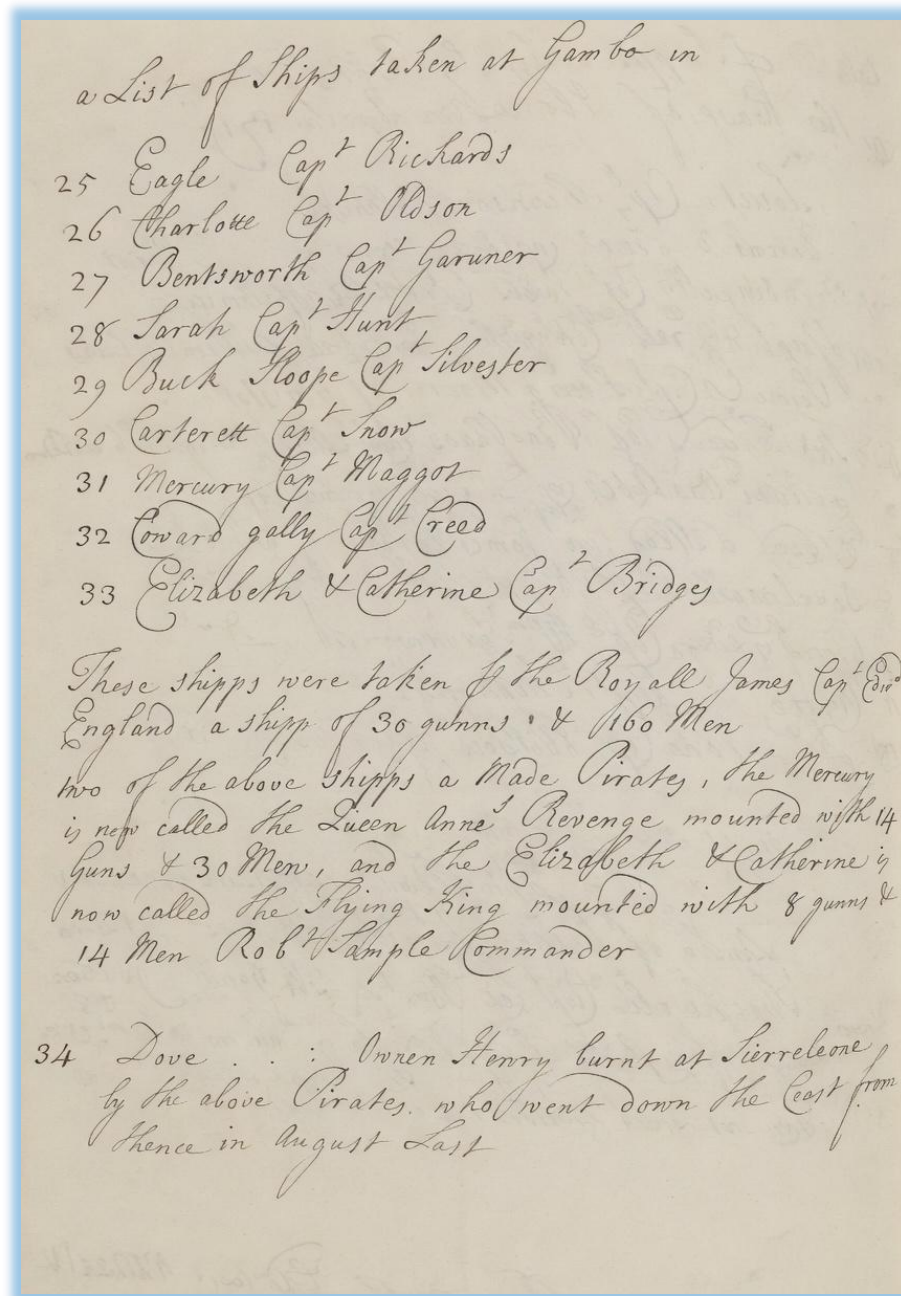 a List of Ships taken at Gambo in
25 Eagle Capt Richards
26 Charlotte Capt Oldson
27 Bentsworth Capt Garuner
28 Sarah Capt Hunt
29 Buck Sloope Capt Silvester
30 Carterett Capt Snow
31 Mercury Capt Maggot
32 Coward gally Capt Creed
33 Elizabeth & Catherine Capt Bridges
These shipps were taken ꝑ the Royall James Capt Edwd
England a shipp of 30 gunns & 160 Men
two of the above shipps a Made Pirates, the Mercury
is now called the Queen Anne's Revenge mounted with 14
Guns & 30 Men, and the Elizabeth & Catherine is
now called the Flying King mounted with 8 gunns &
14 Men Robt Sample Commander
34 Dove . . : Ownen Henry burnt at Sierreleone
by the above Pirates. who went down the Coast from
thence in August Last